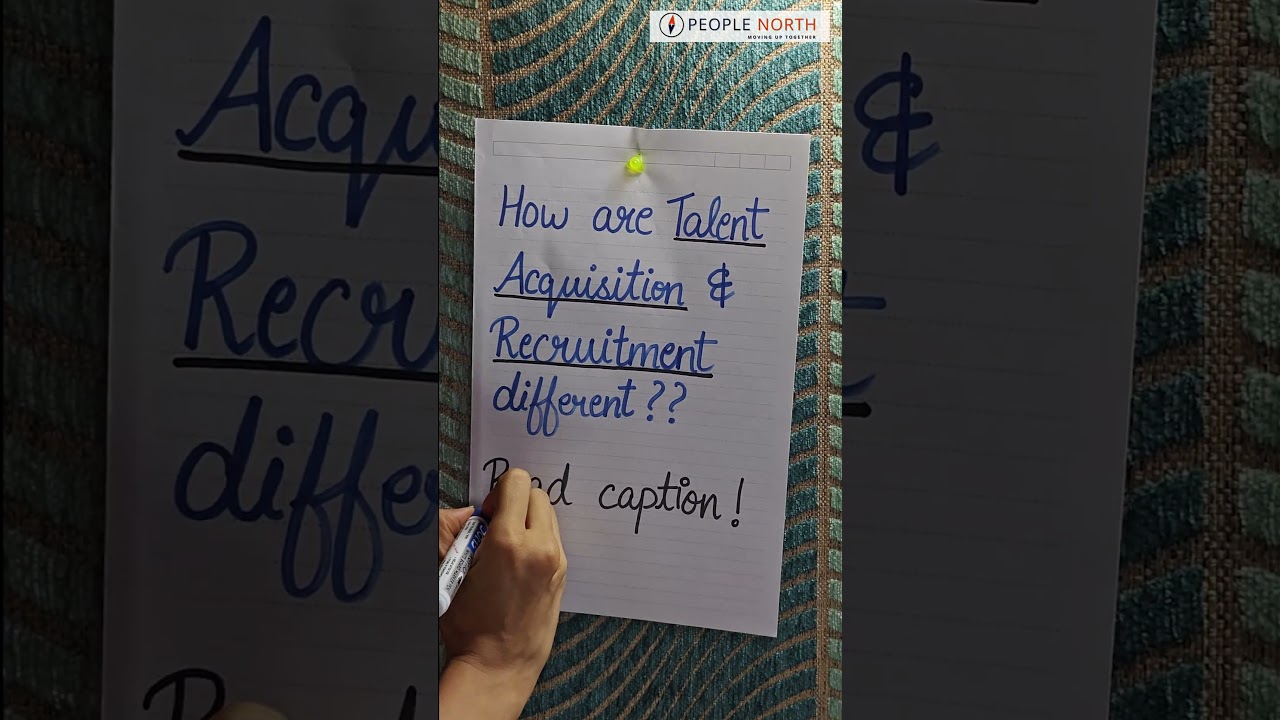 PEOPLE NORTH
MOVING UP TOGETHER
How are Talent
Acquisition &
Recruitment
different??
Read caption!